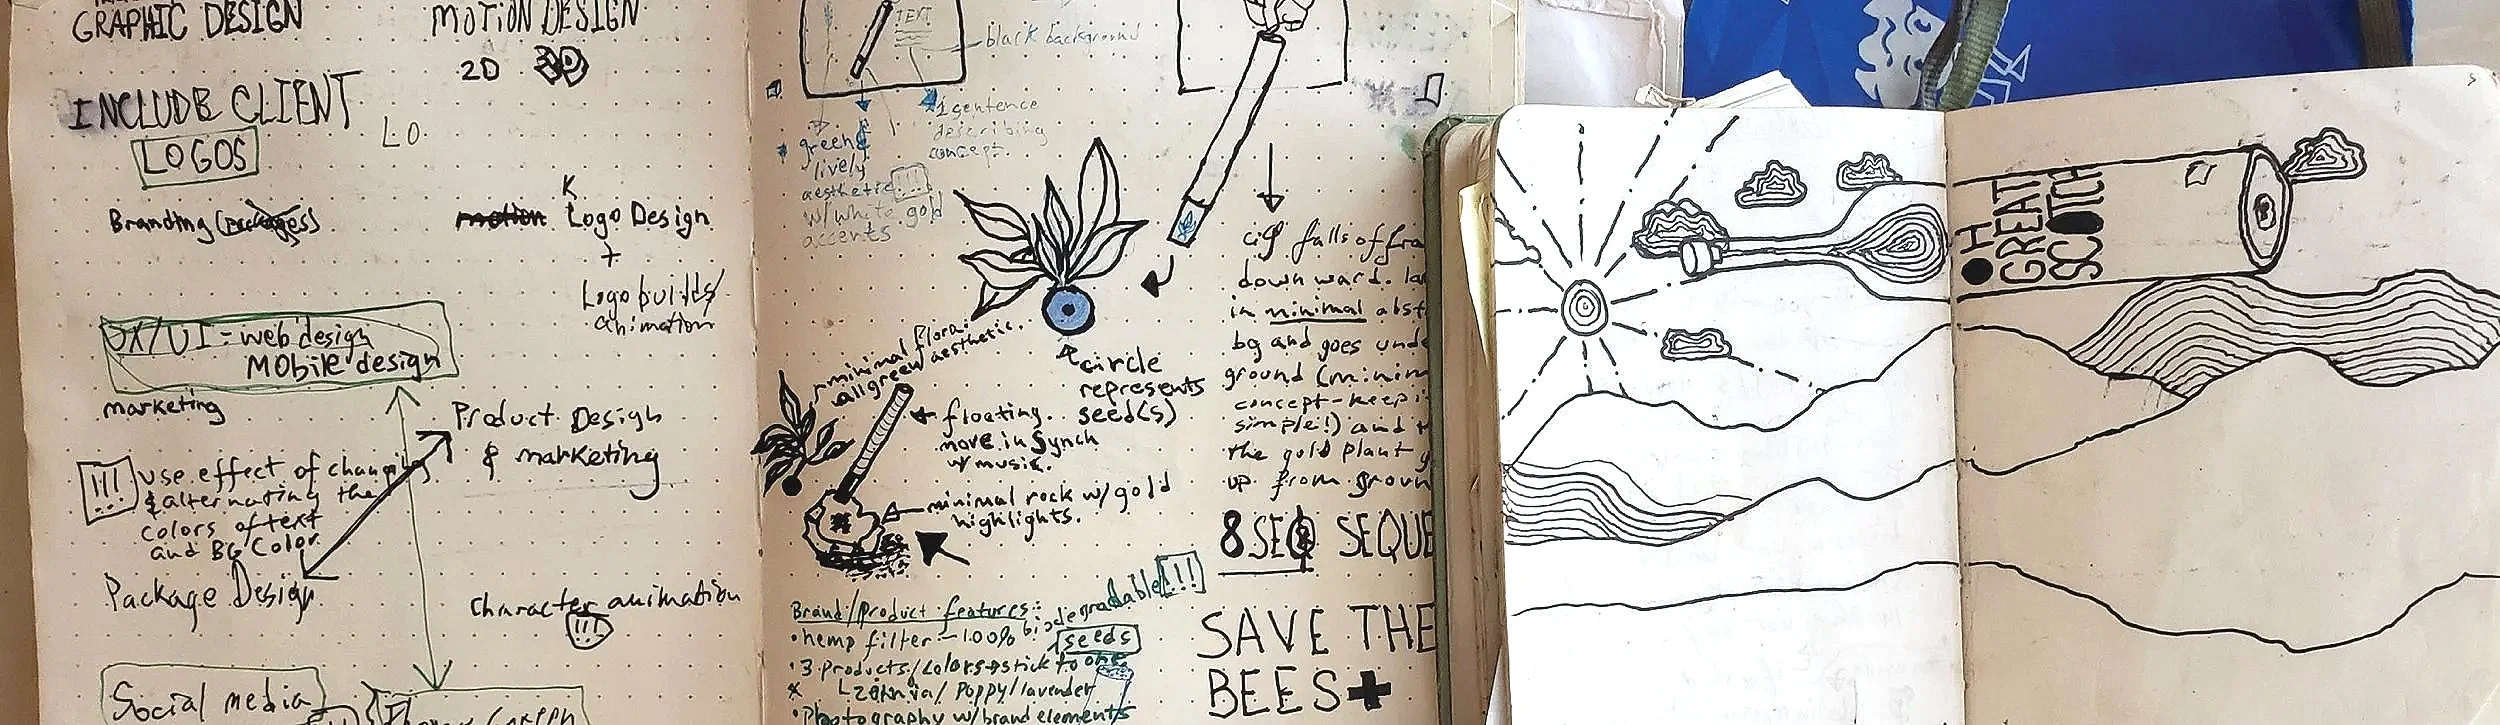 GRAPHIC DESIGN
MOTION DESIGN
2D 3D
INCLUDE CLIENT
LOGOS
LO
Branding (packages)
motion Logo Design
K
+
Logo builds/
animation
UX/UI - web design
Mobile design
marketing
Product Design
& marketing
!!! use effect of changing
& alternating the
colors of text
and BG Color
Package Design
Character animation
!!!
Social media
TEXT
black background
1 sentence
describing
concept.
green &
lively
aesthetic !!!
w/ white gold
accents
minimal floral
all green aesthetic.
circle
represents
seed(s)
floating.
move in synch
w/ music.
minimal rock w/ gold
highlights.
Brand/Product features:
• hemp filter - 100% biodegradable !!!
seeds
• 3 Products/colors → stick to one
x zinnia/ Poppy/lavender
• Photography w/ brand elements
cig falls off
down ward.
in minimal
bg and goes
ground
concept - keep
simple!) and
the gold plant
up from
8 SEQ
SAVE THE
BEES+
OH
GREAT
SCOTCH